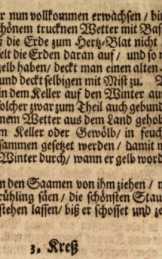 r nun vollkommen erwachsen / bi
chönem trucknen Wetter mit Bast
die Erde zum Hertz-Blat nicht
elt die Erden daran auf / und so n
gelb haben / deckt man einen alten
und deckt selbigen mit Mist zu.
n dem Keller auf den Winter au
olcher zwar zum Theil auch gebun
nem Wetter aus dem Land gehob
n Keller oder Gewölb / in feuch
sammen gesetzet werden / damit n
Winter durch / wann er gelb word
n den Saamen von ihm ziehen /
rühling säen / die schönsten Stau
stehen lassen / biß er schosset und
3. Kreß